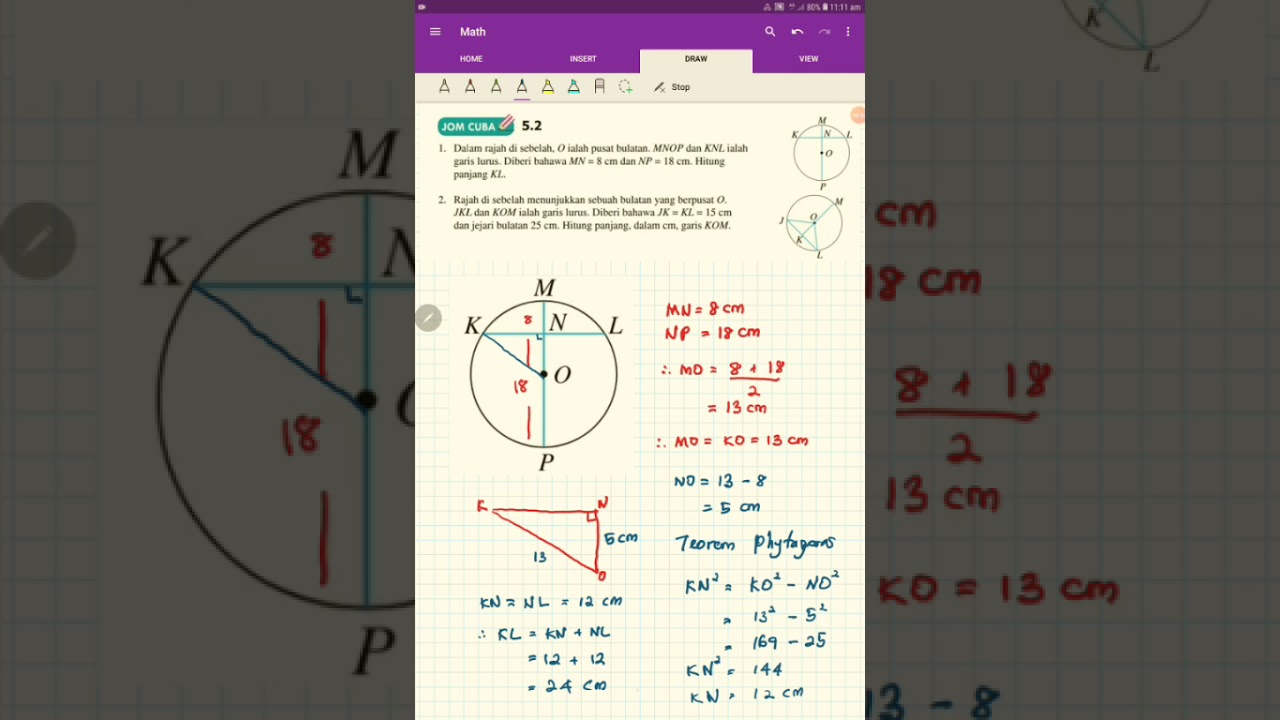 80% 11:11 am
Math
HOME INSERT DRAW VIEW
Stop
JOM CUBA 5.2
1. Dalam rajah di sebelah, O ialah pusat bulatan. MNOP dan KNL ialah
garis lurus. Diberi bahawa MN = 8 cm dan NP = 18 cm. Hitung
panjang KL.
M
K N L
O
P
2. Rajah di sebelah menunjukkan sebuah bulatan yang berpusat O.
JKL dan KOM ialah garis lurus. Diberi bahawa JK = KL = 15 cm
dan jejari bulatan 25 cm. Hitung panjang, dalam cm, garis KOM.
M
J O
K
L
M
K 8 N L
18 O
P
MN = 8 cm
NP = 18 cm
∴ MO = 8 + 18
2
= 13 cm
∴ MO = KO = 13 cm
NO = 13 - 8
= 5 cm
K N
5 cm
13
O
KN = NL = 12 cm
∴ KL = KN + NL
= 12 + 12
= 24 cm
Teorem Phytagoras
KN² = KO² - NO²
= 13² - 5²
= 169 - 25
KN² = 144
KN = 12 cm
K
L
M
K 8 N
18
P
cm
18 cm
8 + 18
2
13 cm
KO = 13 cm
13 - 8